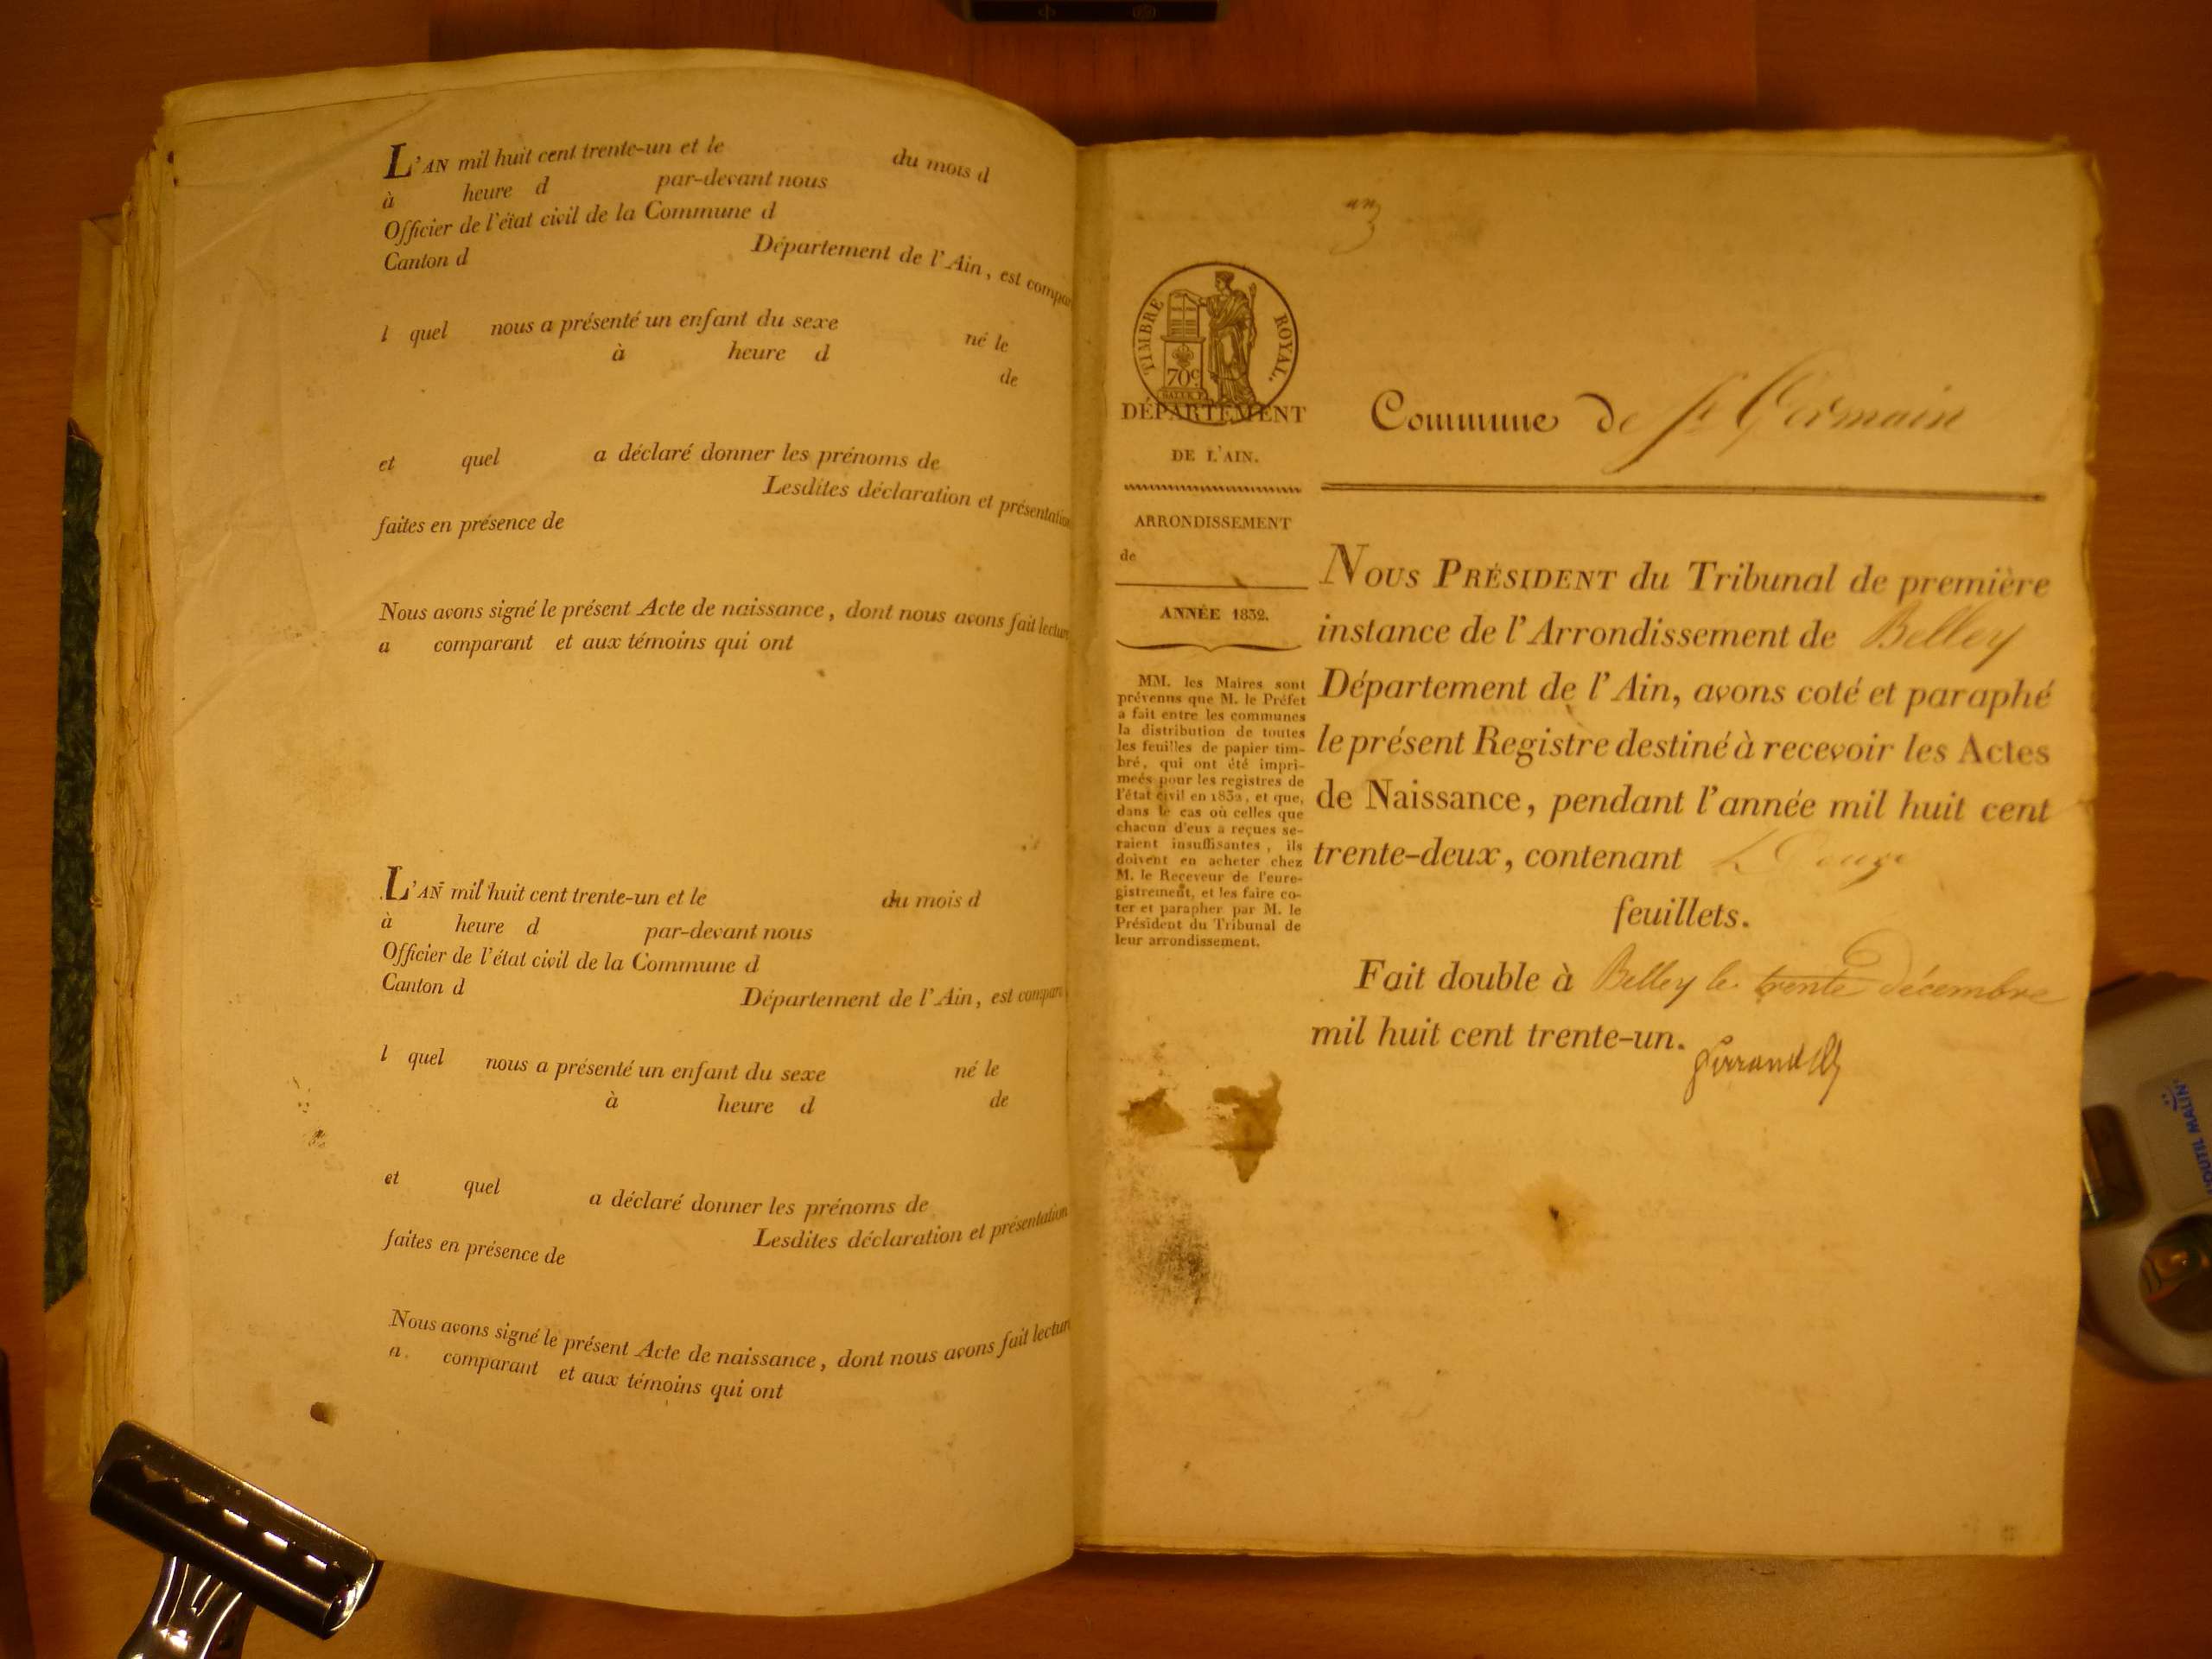 L'AN mil huit cent trente-un et le du mois d
à heure d par-devant nous
Officier de l'état civil de la Commune d
Canton d Département de l'Ain, est compar
l quel nous a présenté un enfant du sexe né le
à heure d de
et quel a déclaré donner les prénoms de
Lesdites déclaration et présentation
faites en présence de
Nous avons signé le présent Acte de naissance, dont nous avons fait lecture
a comparant et aux témoins qui ont
L'AN mil huit cent trente-un et le du mois d
à heure d par-devant nous
Officier de l'état civil de la Commune d
Canton d Département de l'Ain, est compar
l quel nous a présenté un enfant du sexe né le
à heure d de
et quel a déclaré donner les prénoms de
Lesdites déclaration et présentation
faites en présence de
Nous avons signé le présent Acte de naissance, dont nous avons fait lecture
a comparant et aux témoins qui ont
TIMBRE ROYAL.
70c
DÉPARTEMENT
DE L'AIN.
ARRONDISSEMENT
de
ANNÉE 1832.
MM. les Maires sont
prévenus que M. le Préfet
a fait entre les communes
la distribution de toutes
les feuilles de papier tim-
bré, qui ont été impri-
meés pour les registres de
l'état civil en 1832, et que,
dans le cas où celles que
chacun d'eux a reçues se-
raient insuffisantes, ils
doivent en acheter chez
M. le Receveur de l'enre-
gistrement, et les faire co-
ter et parapher par M. le
Président du Tribunal de
leur arrondissement.
Commune de St Germain
NOUS PRÉSIDENT du Tribunal de première
instance de l'Arrondissement de Belley
Département de l'Ain, avons coté et paraphé
le présent Registre destiné à recevoir les Actes
de Naissance, pendant l'année mil huit cent
trente-deux, contenant
feuillets.
Fait double à Belley le trente décembre
mil huit cent trente-un.
L'OUTIL MALIN